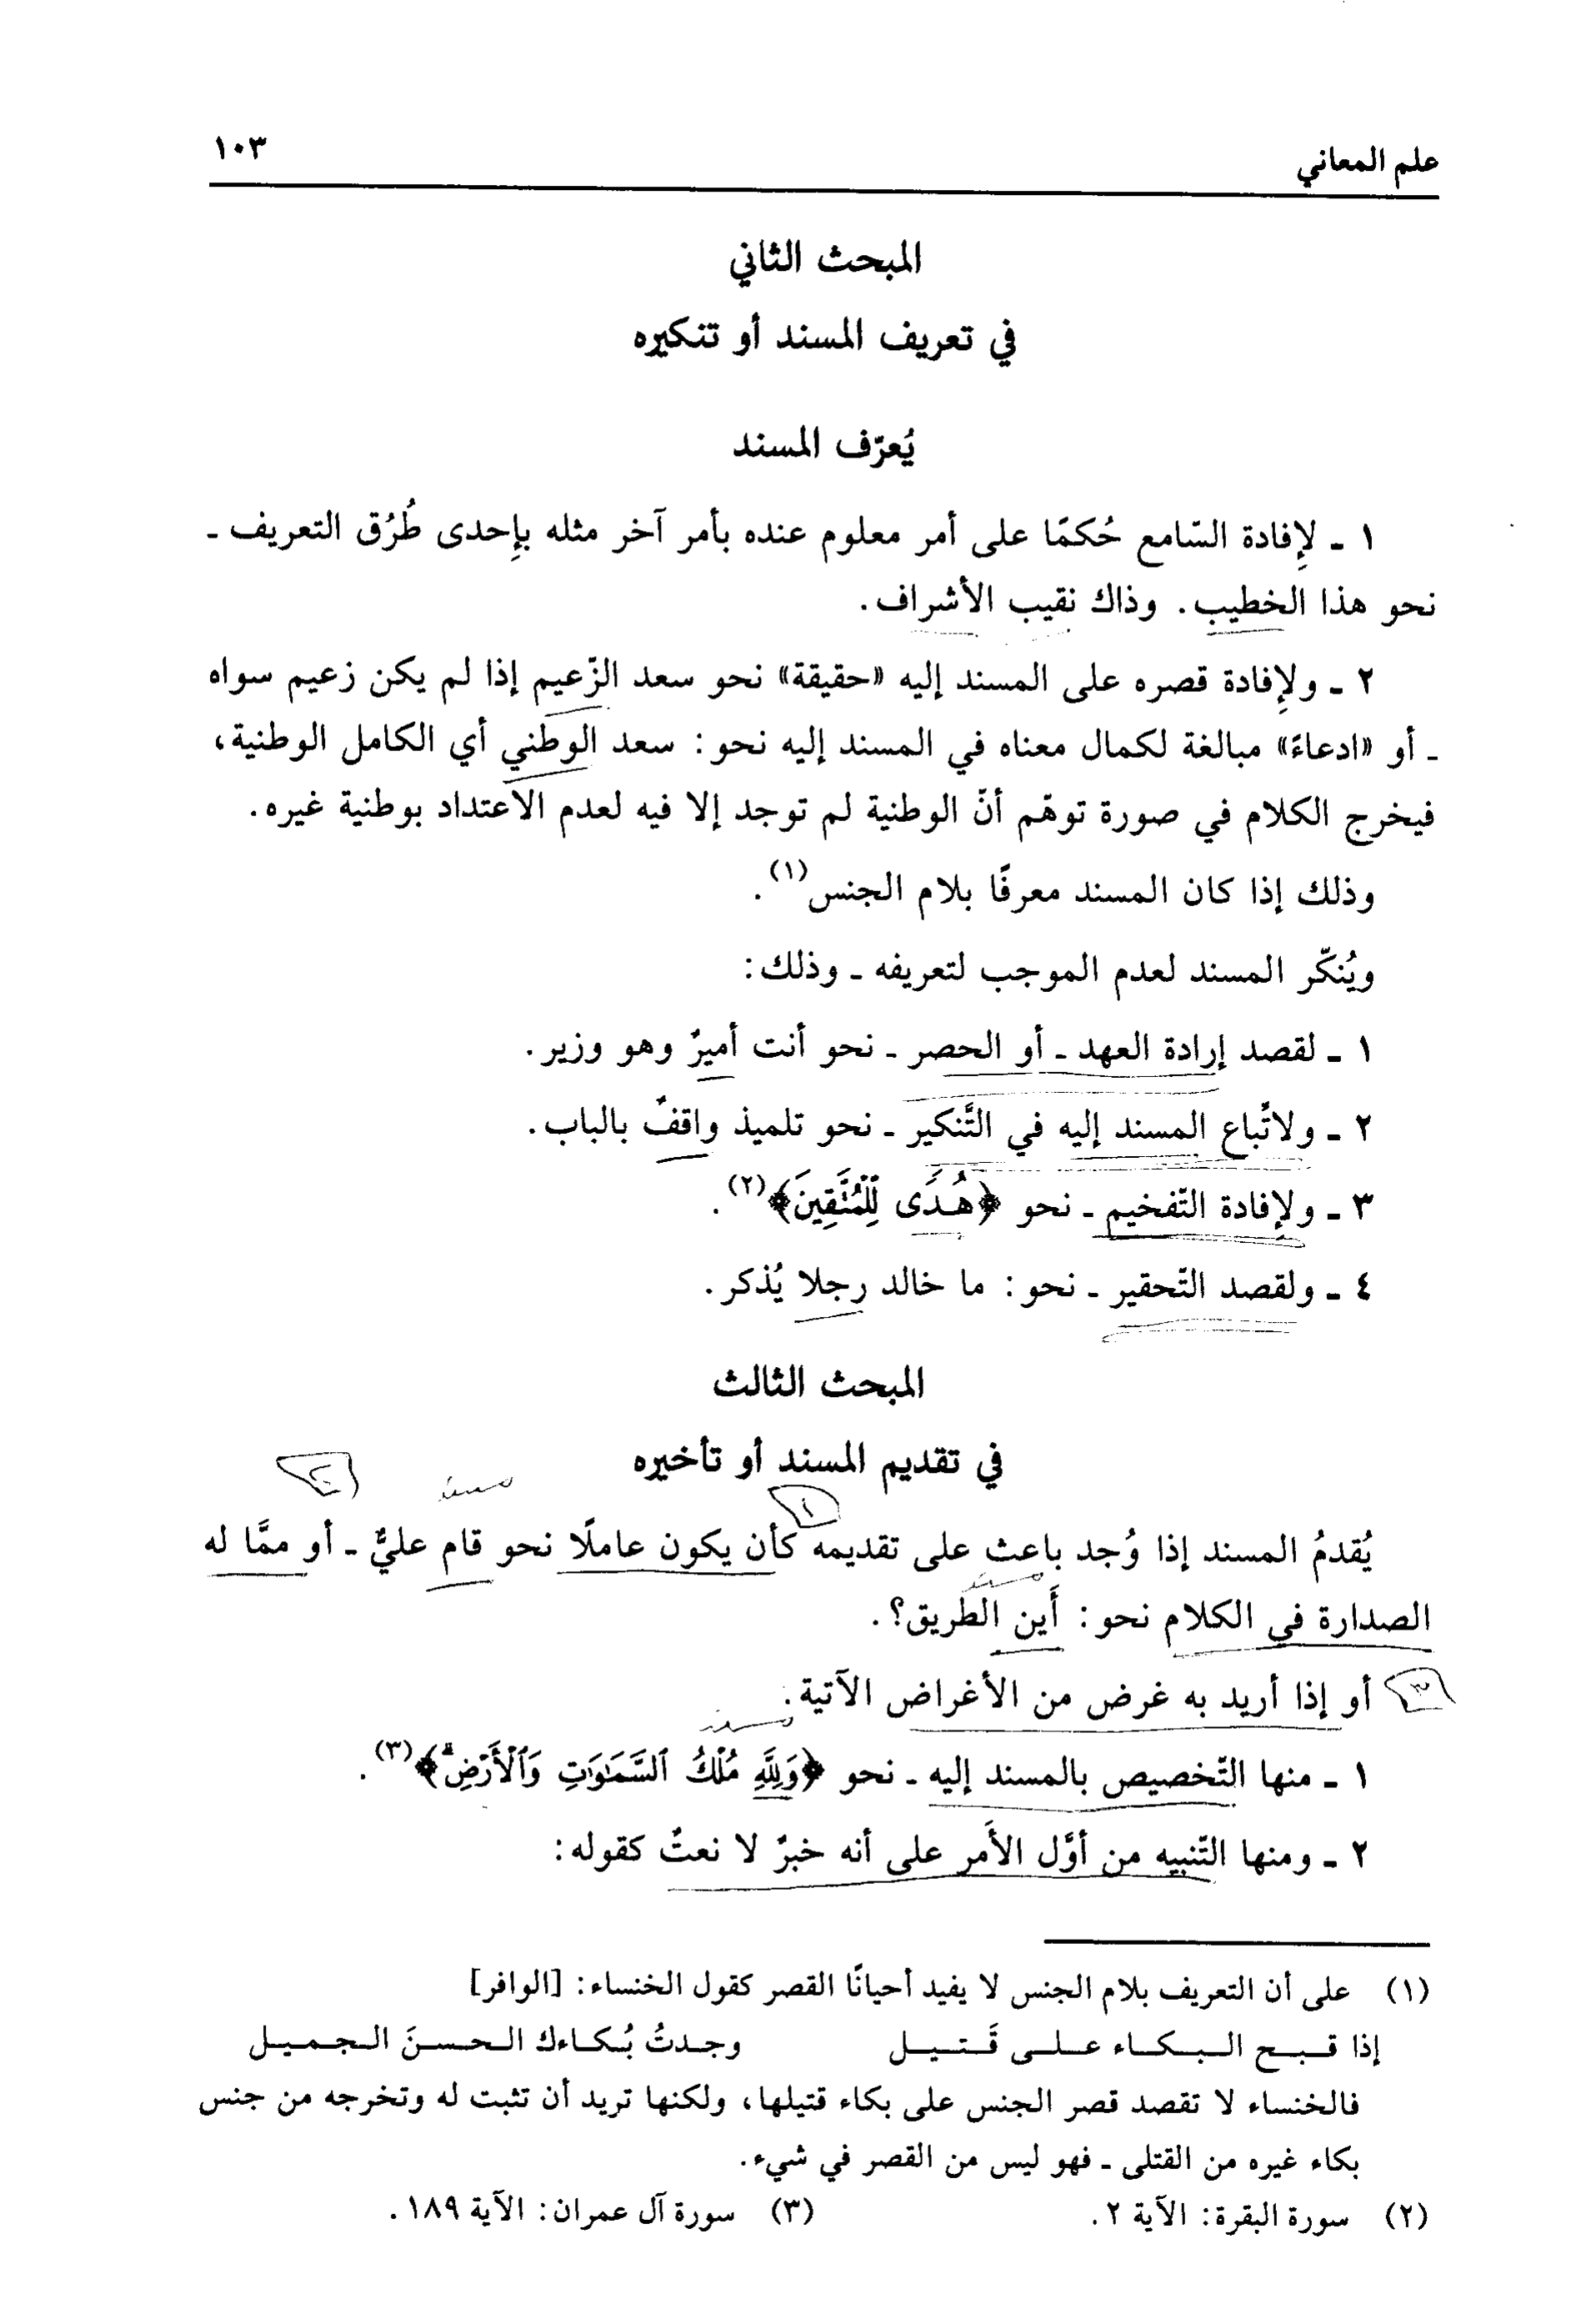 علم المعاني
١٠٣
المبحث الثاني
في تعريف المسند أو تنكيره
يُعرّف المسند
١ ـ لإِفادة السّامع حُكمًا على أمر معلوم عنده بأمر آخر مثله بإِحدى طُرُق التعريف ـ
نحو هذا الخطيب. وذاك نقيب الأشراف.
٢ ـ ولإِفادة قصره على المسند إليه «حقيقة» نحو سعد الزّعيم إذا لم يكن زعيم سواه
ـ أو «ادعاءً» مبالغة لكمال معناه في المسند إليه نحو: سعد الوطني أي الكامل الوطنية،
فيخرج الكلام في صورة توهّم أنّ الوطنية لم توجد إلا فيه لعدم الاعتداد بوطنية غيره.
وذلك إذا كان المسند معرفًا بلام الجنس(١).
ويُنكّر المسند لعدم الموجب لتعريفه ـ وذلك:
١ ـ لقصد إرادة العهد ـ أو الحصر ـ نحو أنت أميرٌ وهو وزير.
٢ ـ ولاتّباع المسند إليه في التَّنكير ـ نحو تلميذ واقفٌ بالباب.
٣ ـ ولإفادة التّفخيم ـ نحو ﴿هُدًى لِّلْمُتَّقِينَ﴾(٢).
٤ ـ ولقصد التّحقير ـ نحو: ما خالد رجلا يُذكر.
المبحث الثالث
في تقديم المسند أو تأخيره
مسند
٢
١
يُقدمُ المسند إذا وُجد باعث على تقديمه كأن يكون عاملًا نحو قام عليٌّ ـ أو ممَّا له
مسند
الصدارة في الكلام نحو: أَين الطريق؟.
٣
أو إذا أريد به غرض من الأغراض الآتية.
مسند
١ ـ منها التّخصيص بالمسند إليه ـ نحو ﴿وَلِلَّهِ مُلْكُ ٱلسَّمَٰوَٰتِ وَٱلْأَرْضِۗ﴾(٣).
٢ ـ ومنها التّنبيه من أوَّل الأَمر على أنه خبرٌ لا نعتٌ كقوله:
(١) على أن التعريف بلام الجنس لا يفيد أحيانًا القصر كقول الخنساء: [الوافر]
إذا قبح البكاء على قَتيل وجدتُ بُكاءك الحسنَ الجميل
فالخنساء لا تقصد قصر الجنس على بكاء قتيلها، ولكنها تريد أن تثبت له وتخرجه من جنس
بكاء غيره من القتلى ـ فهو ليس من القصر في شيء.
(٢) سورة البقرة: الآية ٢. (٣) سورة آل عمران: الآية ١٨٩.